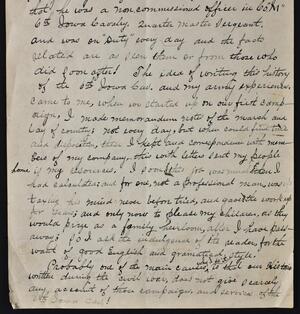 that he was a non commissioned officer in Co "M"
6th Iowa Cavalry. Quarter Master Sergeant,
and was on "Duty" every day and the facts
related are as seen them or from those who
did soon after. The idea of writing this history
of the 6th Iowa Cav. and my army experience,
came to me, when we started up on our first camp-
aign, I made memorandum notes of the march and
lay of country; not every day, but when could find time
and disposition, then I kept and correspondence with mem-
bers of my company, this with letters sent my people
home is my resources. I
had and for one, not a professional man, was
his mind never before tried, and quit the work up
for years; and only now to please my children, as they
would prize as a family heirloom, after I have pass-
away; so I ask the indulgence of the reader, for the
want of good English and gramatical style.
Probably one of the main causes, is that our Histories
written during the civil war, does not give scarcely
any, account of these campaigns, and services of the
6th Iowa Cav.!